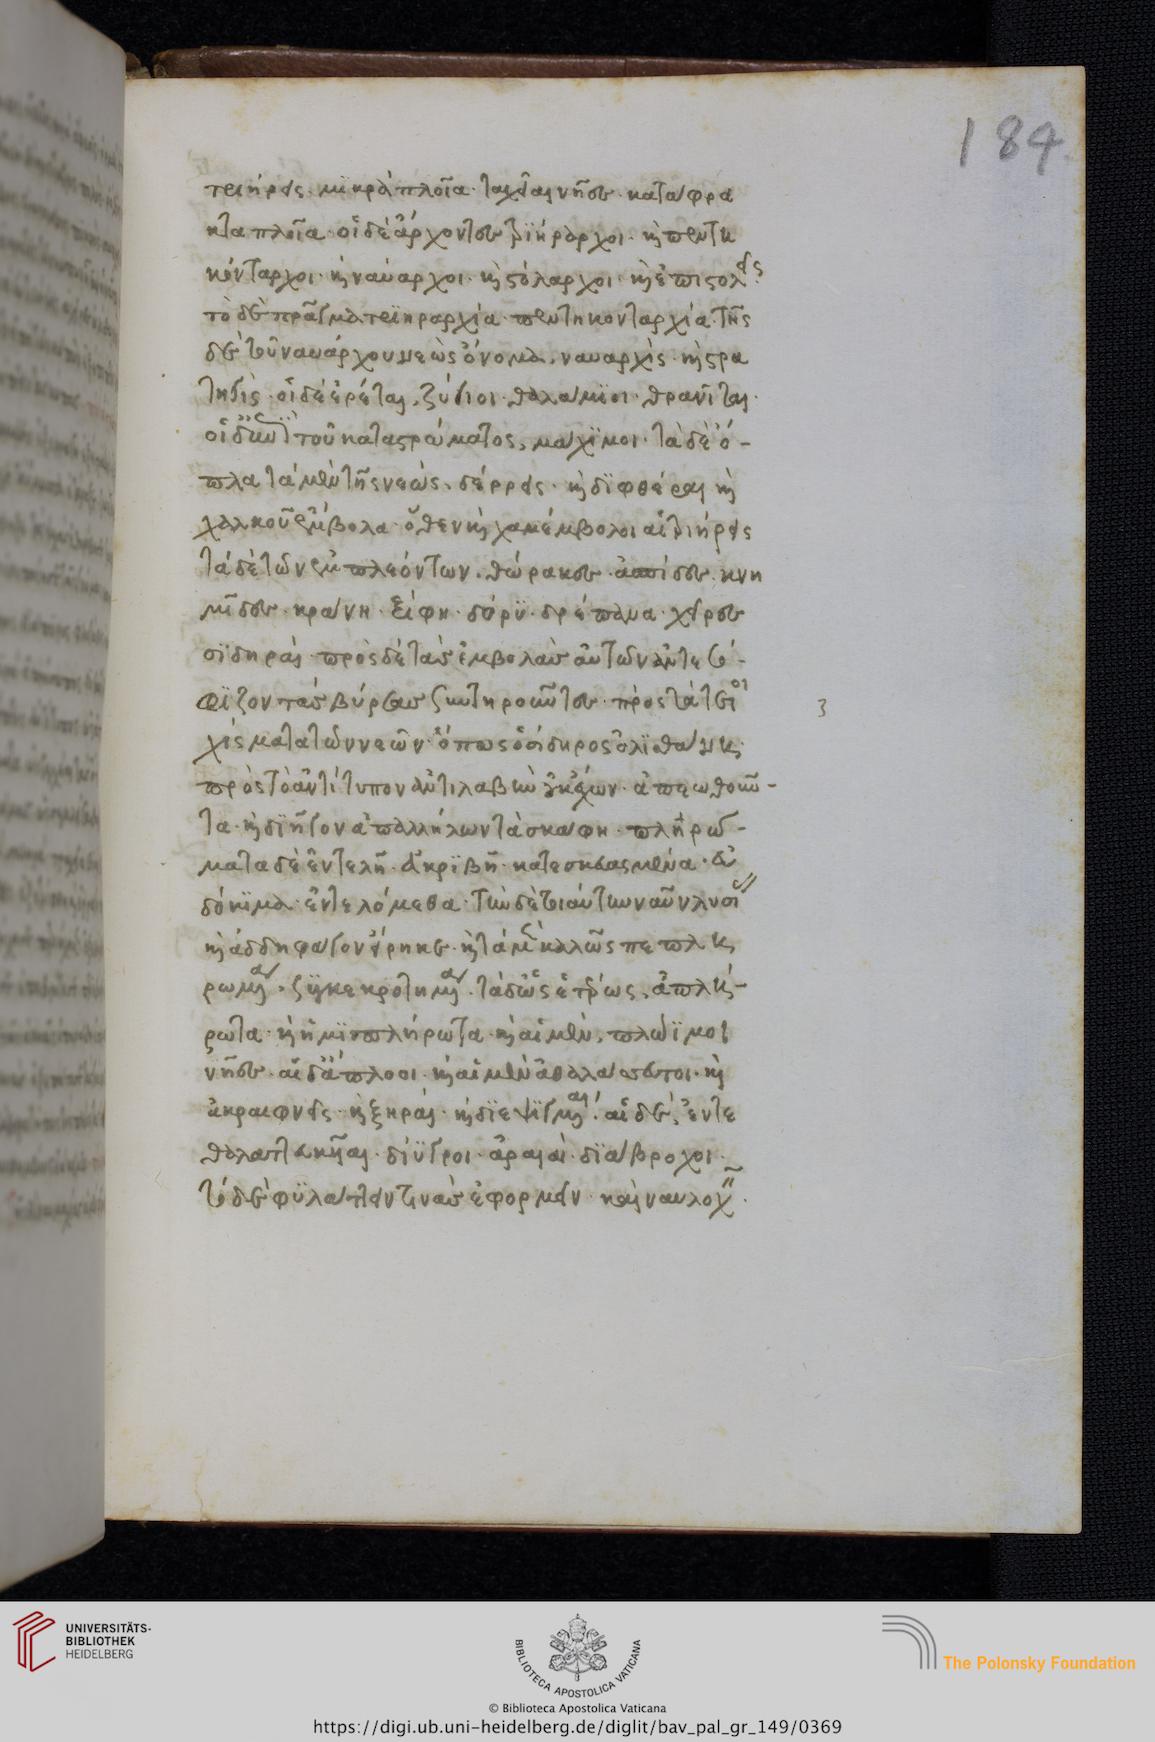 184
τριήρεις· μϊκρὰ πλοῖα· ταχεῖαι νῆες· κατάφρα
κτα πλοῖα· οἱ δὲ ἄρχοντες τριήραρχοι· καὶ πεντη
κόνταρχοι· καὶ ναύαρχοι· καὶ στόλαρχοι· καὶ ἐπιστολεῖς·
τὸ δὲ πρᾶγμα τριηραρχία· πεντηκονταρχία· τῆς
δὲ τοῦ ναυάρχου νεὼς ὄνομα, ναυαρχὶς· καὶ στρα
τηγὶς· οἱ δὲ ἐρέται, ζύγιοι· θαλάμϊοι· θρανῖται·
οἱ δὲ ἀπὸ τοῦ καταστρώματος, μάχϊμοι· τὰ δὲ ὅ-
πλα τὰ μὲν τῆς νεώς, δέρρεις· καὶ δϊφθέραι καὶ
χαλκοῦ ἔμβολα· ὅθεν καὶ χαλκέμβολοι αἱ τριήρεις
τὰ δὲ τῶν ἐμπλεόντων, θώρακες· ἀσπίδες· κνη
μῖδες· κράνη· ξίφη· δόρϋ· δρέπανα· χεῖρες
σϊδηραῖ· πρὸς δὲ τὰς ἐμβολὰς αὐτῶν ἀντε
βύρσας πρὸς τὰ τοι
χίσματα τῶν νεῶν· ὅπως ὁ σίδηρος ὀλϊσθάνῃ·
πρὸς τὸ ἀντίτυπον ἀντιλαβὴν οὐκ ἔχων·
πληρώ-
ματα δὲ ἐντελῆ· ἀκρϊβῆ· κατεσκευασμένα· εὐ
δόκϊμα· ἐντελόμεθα· τῶν δὲ τοιούτων
καὶ ἀδδηφάγον τριήρη καὶ τὰ μὲν καλῶς πεπλη
ρωμένα· συγκεκροτημένα· τὰ δ' ὡς ἑτέρως, ἀπλή-
ρωτα· καὶ ἡμϊπλήρωτα· καὶ αἱ μὲν, πλώϊμοι
νῆες· αἱ δ' ἄπλοοι· καὶ αἱ μὲν ἀθαλάττευτοι· καὶ
ἀκραιφνεῖς· καὶ ξηραὶ· καὶ διεψϋγμέναι· αἱ δὲ, ἐντε
θαλαττευκῆαι· δίϋγροι· ἀραιαὶ· δϊάβροχοι·
τὸ δὲ φϋλάττειν τινὰς ἐφορμεῖν· καὶ ναυλοχεῖν·
3
UNIVERSITÄTS-
BIBLIOTHEK
HEIDELBERG
BIBLIOTECA APOSTOLICA VATICANA
The Polonsky Foundation
© Biblioteca Apostolica Vaticana
https://digi.ub.uni-heidelberg.de/diglit/bav_pal_gr_149/0369